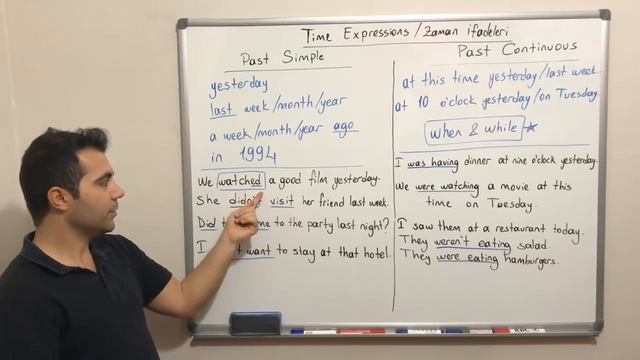 Time Expressions / Zaman ifadeleri
Past Simple
yesterday
last week/month/year
a week/month/year ago
in 1994
We watched a good film yesterday.
She didn't visit her friend last week.
Did to the party last night?
I want to stay at that hotel.
Past Continuous
at this time yesterday/last week
at 10 o'clock yesterday/on Tuesday
when & while *
I was having dinner at nine o'clock yesterday.
We were watching a movie at this
time on Tuesday.
I saw them at a restaurant today.
They weren't eating salad.
They were eating hamburgers.